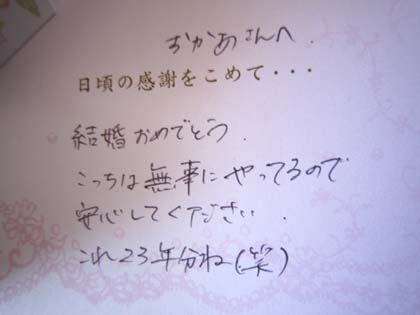 おかあさんへ.
日頃の感謝をこめて・・・
結婚おめでとう.
こっちは無事にやってるので
安心してください.
これ23年分ね(笑)